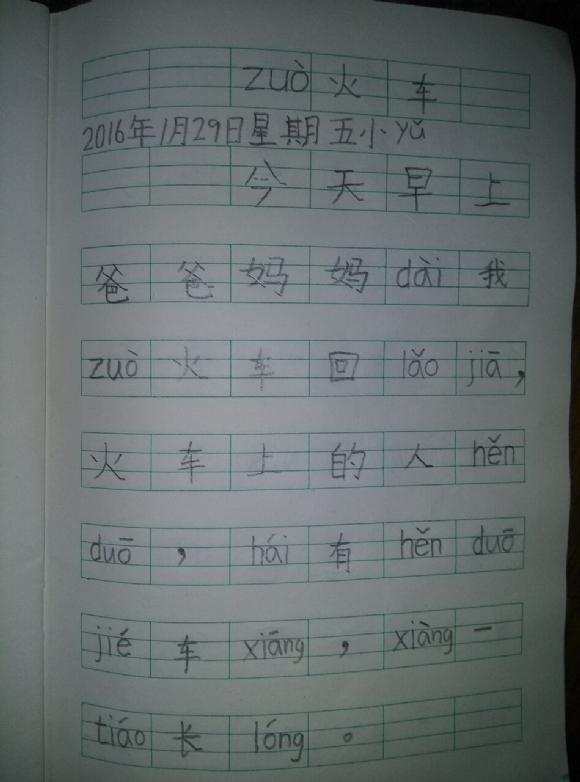 zuò火车
2016年1月29日星期五小yǔ
今天早上
爸爸妈妈dài我
zuò火车回lǎojiā,
火车上的人hěn
duō,hái有hěnduō
jié车xiāng,xiàng一
tiáo长lóng。